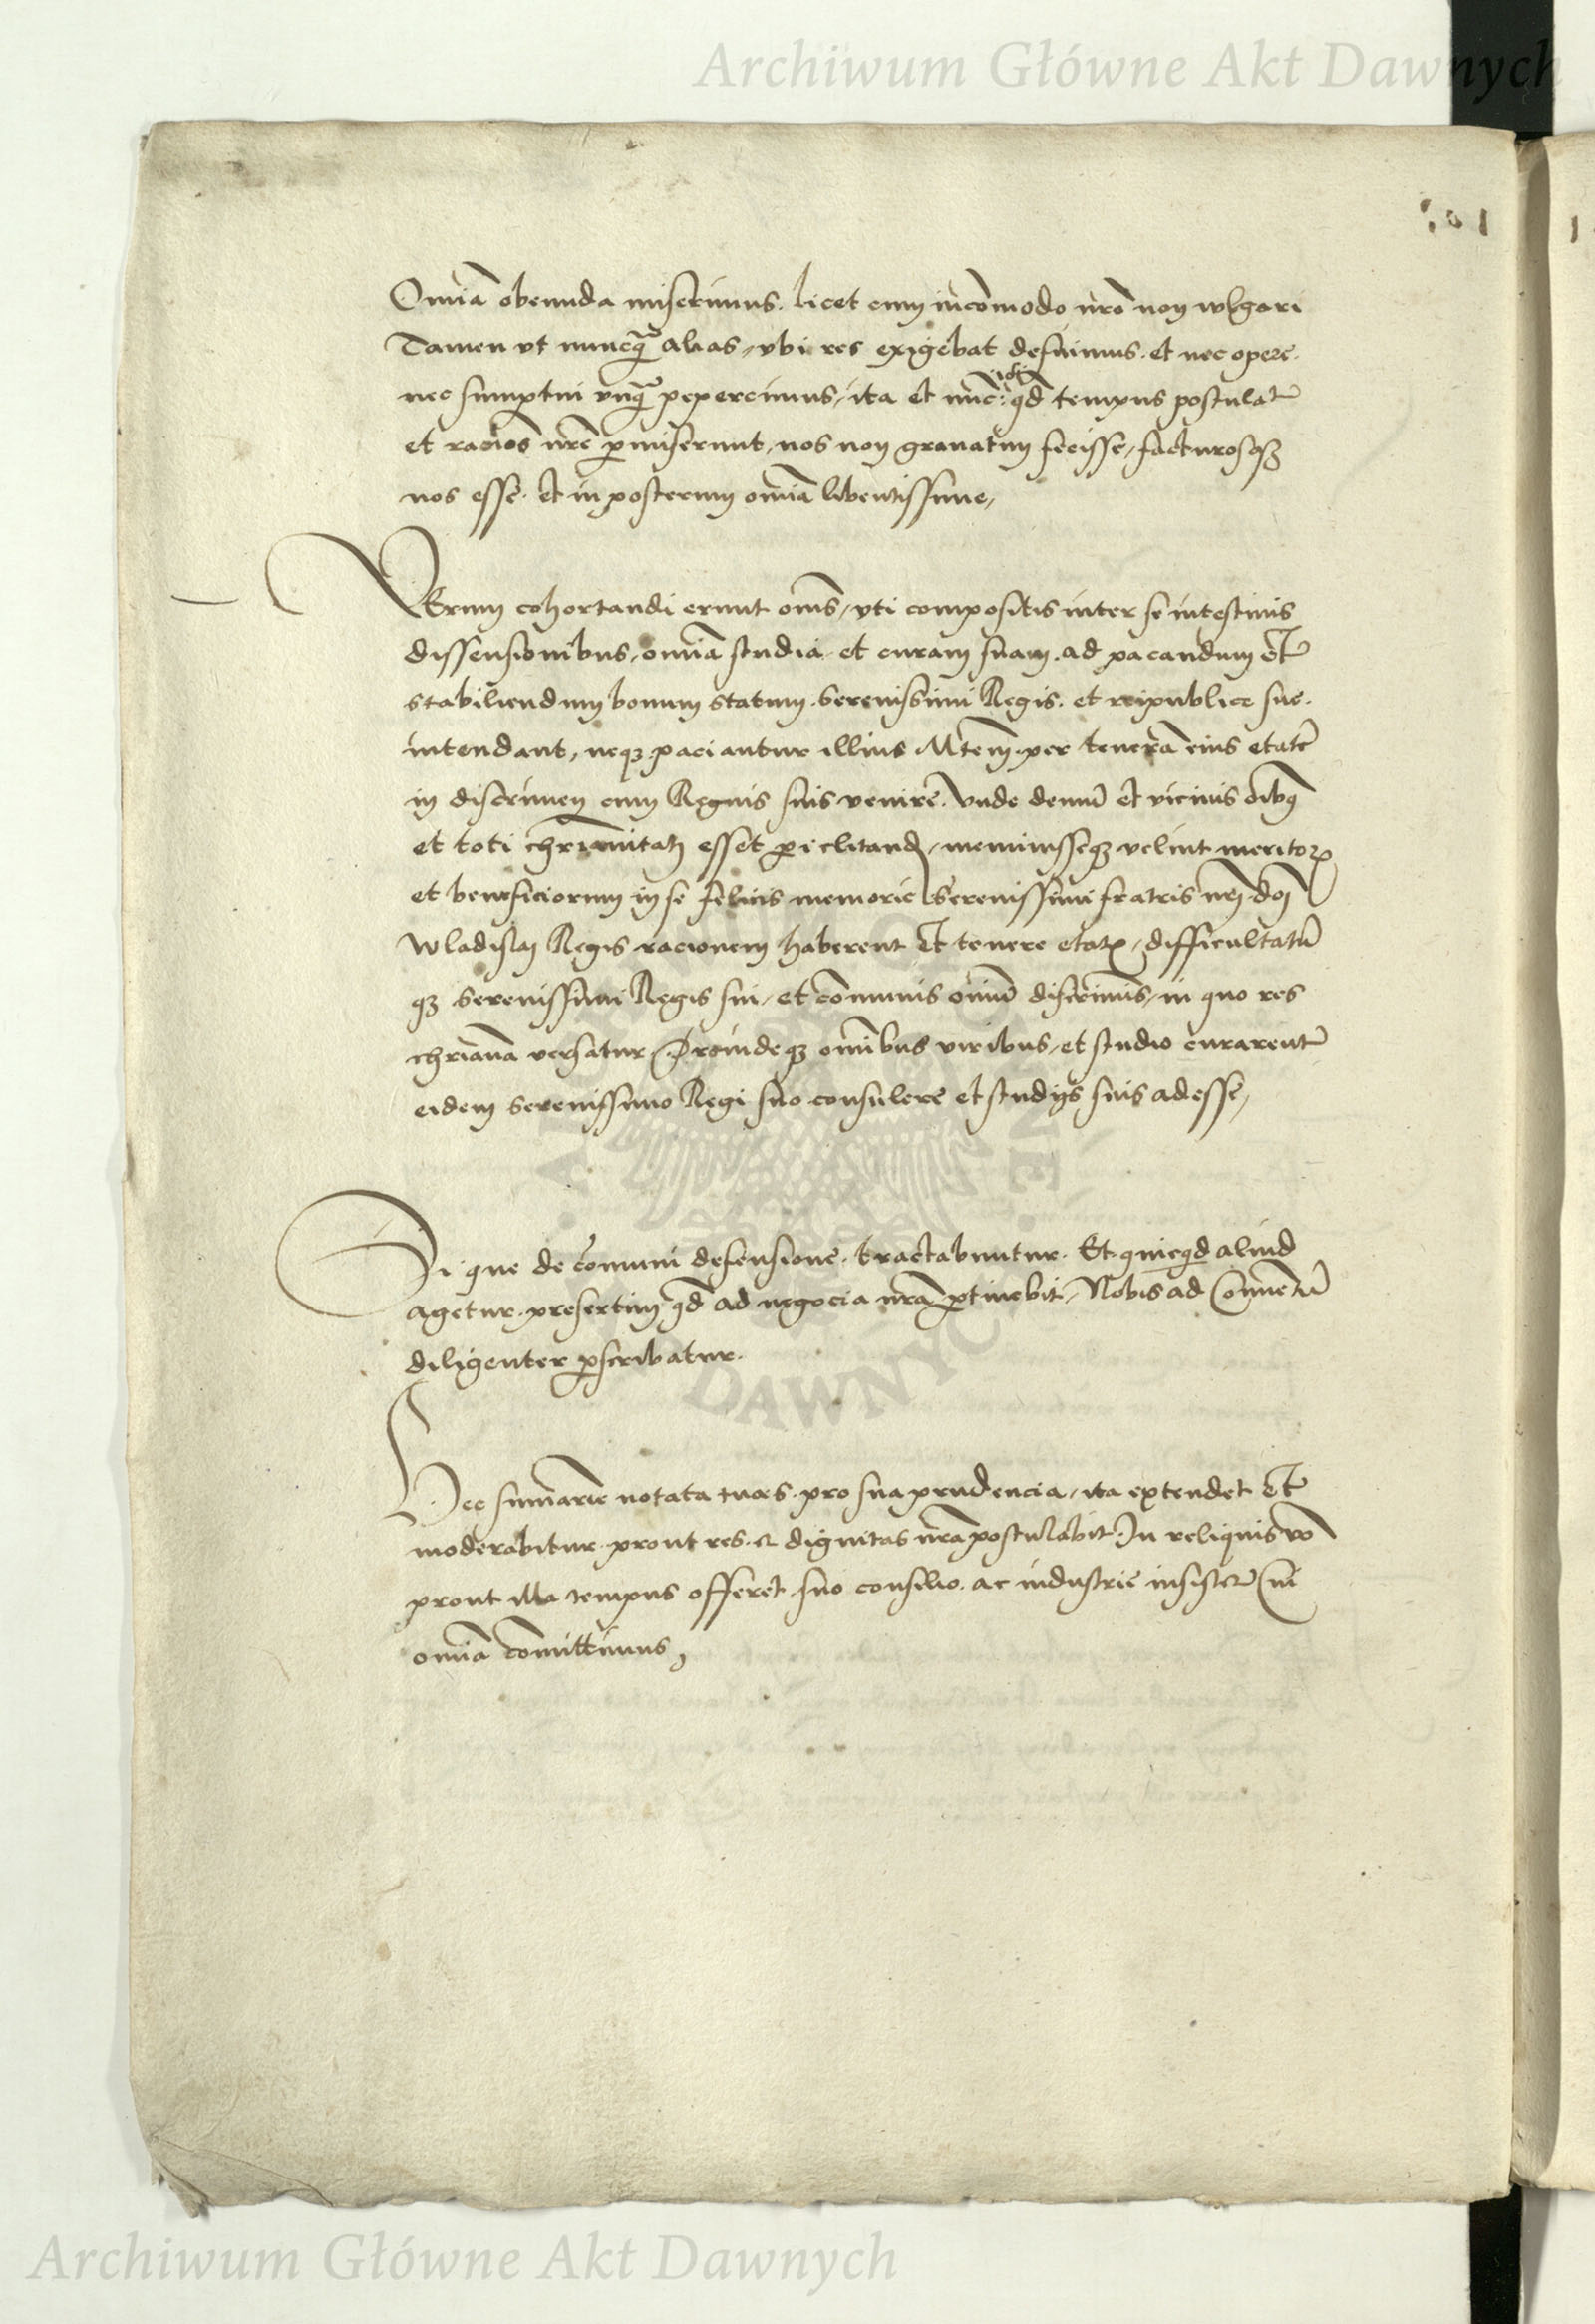 Archiwum Główne Akt Dawnych
101
Omnia obeunda miserimus. licet cum incōmodo nrō non wlgari
Tamen vt nuncq̄ alias, vbi res exigebat defuimus. et nec opere.
nec sumptui vnq̄ pepercimus, ita et nūc: qd̄ tempus postulat
et raciōes nrē pmiserunt, nos non grauatim fecisse, facturosqȝ
nos esse. et in posterum omīa libentissime,
Verum cohortandi erunt omēs, vti compositis inter se intestinis
dissensionibus, omīa studia et curam suam. ad pacandum et
stabiliendum bonum statum. Serenissimi Regis. et reipublice sue.
intendant, neqȝ paciantur illius Mtem. per tenerā eius etatē
in discrimen cum Regnis suis venire. Vnde demū et vicinis oībȝ
et toti chriānitati esset periclitandū, meminisseqȝ velint meritoꝝ
et beneficiorum in se felicis memorie Serenissimi fratris nrī dnī
Wladislai Regis racionem haberent et tenere etatis, difficultatū
qȝ Serenissimi Regis sui, et cōmunis omniū discriminis, in quo res
chriāna versatur Proindeqȝ omībus viribus, et studio curarent
eidem Serenissimo Regi suo consulere et studijs suis adesse,
que de cōmuni defensione. tractabuntur. Et quicqd aliud
agetur. presertim qd̄ ad negocia nrā ptinebit, Nobis ad
diligenter pscribatur.
Hec sumārie notata pro sua prudencia, ita extendet et
moderabitur. prout res. et dignitas nrā postulabit. In reliquis vo
prout illa tempus offeret suo consilio. ac industrie insistet, Cui
omīa cōmittimus,
ARCHIWUM GŁÓWNE AKT DAWNYCH
Archiwum Główne Akt Dawnych